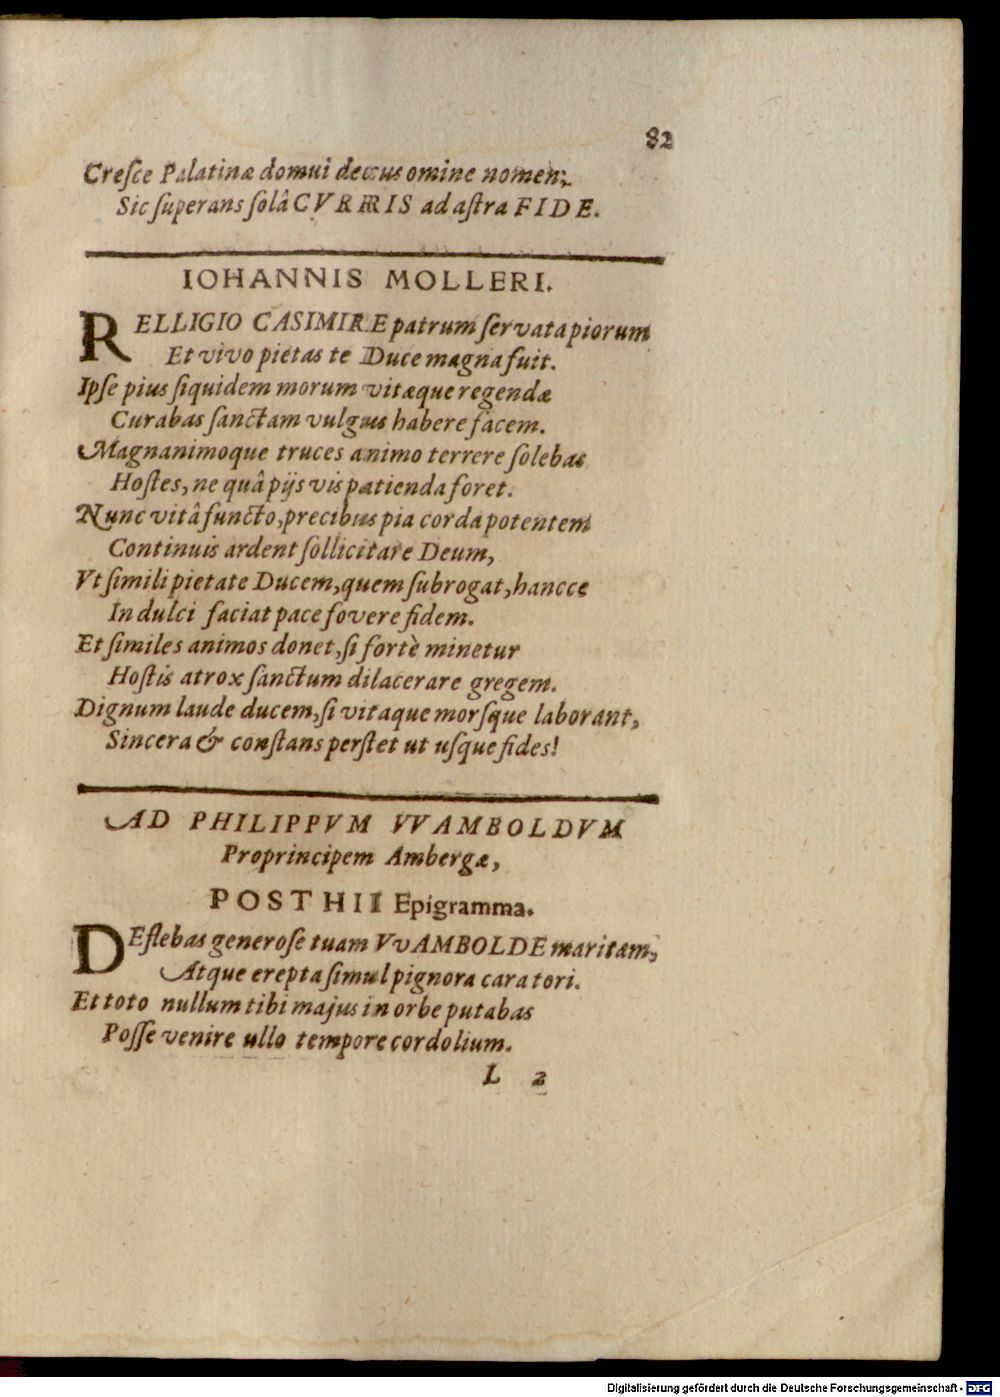 82
Creſce Palatinæ domui decus omine nomen;
Sic ſuperans ſolâ CVRRIS ad aſtra FIDE.
IOHANNIS MOLLERI.
RELLIGIO CASIMIRE patrum ſervata piorum
Et vivo pietas te Duce magna fuit.
Ipſe pius ſiquidem morum vitæque regendæ
Curabas ſanctam vulgus habere facem.
Magnanimoque truces animo terrere ſolebas
Hoſtes, ne quâ pijs vis patienda foret.
Nunc vitâ functo, precibus pia corda potentem
Continuis ardent ſollicitare Deum,
Vt ſimili pietate Ducem, quem ſubrogat, hancce
In dulci faciat pace fovere fidem.
Et ſimiles animos donet, ſi fortè minetur
Hoſtis atrox ſanctum dilacerare gregem.
Dignum laude ducem, ſi vitaque morſque laborant,
Sincera & conſtans perſtet ut uſque fides!
AD PHILIPPVM VVAMBOLDVM
Proprincipem Ambergæ,
POSTHII Epigramma.
DEflebas generoſe tuam VvAMBOLDE maritam,
Atque erepta ſimul pignora cara tori.
Et toto nullum tibi majus in orbe putabas
Poſſe venire ullo tempore cordolium.
L 2
Digitalisierung gefördert durch die Deutsche Forschungsgemeinschaft - DFG